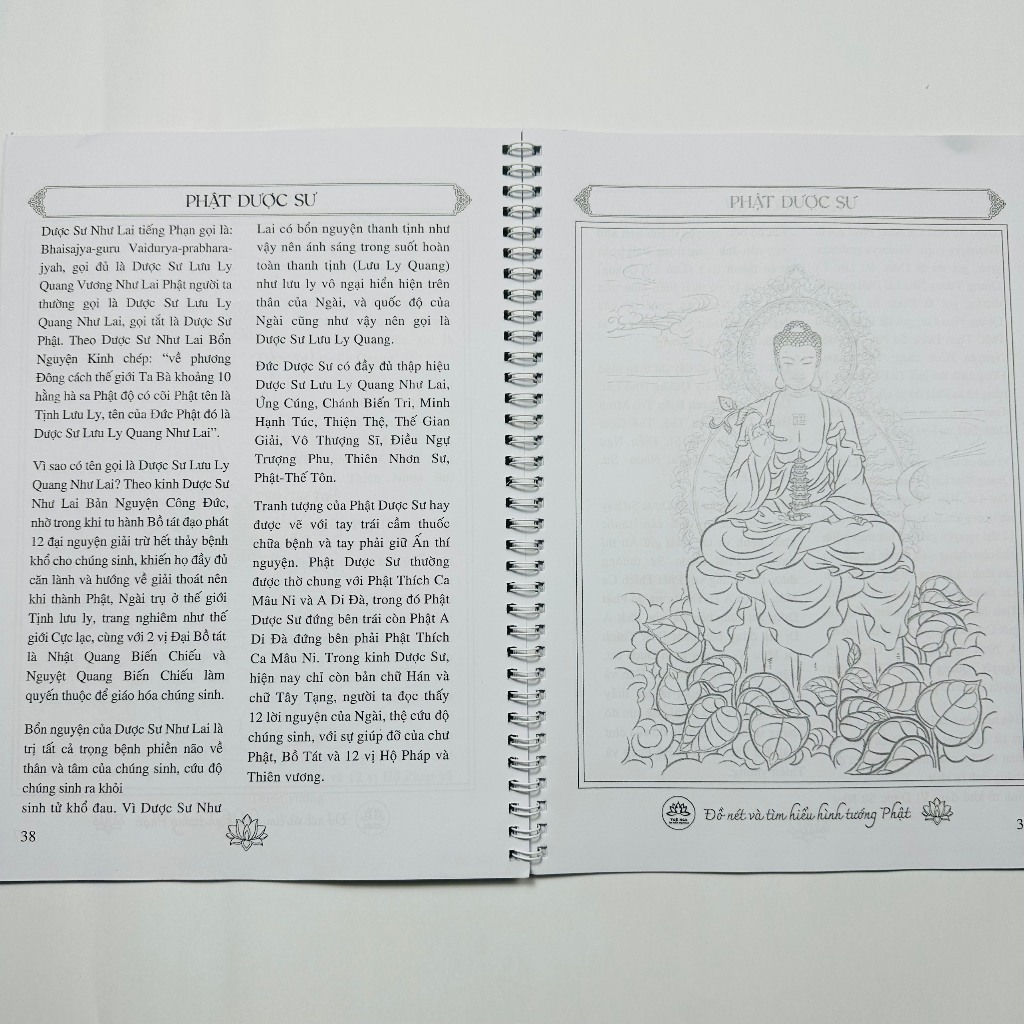 PHẬT DƯỢC SƯ
Dược Sư Như Lai tiếng Phạn gọi là:
Bhaisajya-guru Vaidurya-prabhara-
jyah, gọi đủ là Dược Sư Lưu Ly
Quang Vương Như Lai Phật người ta
thường gọi là Dược Sư Lưu Ly
Quang Như Lai, gọi tắt là Dược Sư
Phật. Theo Dược Sư Như Lai Bổn
Nguyện Kinh chép: “về phương
Đông cách thế giới Ta Bà khoảng 10
hằng hà sa Phật độ có cõi Phật tên là
Tịnh Lưu Ly, tên của Đức Phật đó là
Dược Sư Lưu Ly Quang Như Lai”.
Vì sao có tên gọi là Dược Sư Lưu Ly
Quang Như Lai? Theo kinh Dược Sư
Như Lai Bản Nguyện Công Đức,
nhờ trong khi tu hành Bồ tát đạo phát
12 đại nguyện giải trừ hết thảy bệnh
khổ cho chúng sinh, khiến họ đầy đủ
căn lành và hướng về giải thoát nên
khi thành Phật, Ngài trụ ở thế giới
Tịnh lưu ly, trang nghiêm như thế
giới Cực lạc, cùng với 2 vị Đại Bồ tát
là Nhật Quang Biến Chiếu và
Nguyệt Quang Biến Chiếu làm
quyến thuộc để giáo hóa chúng sinh.
Bổn nguyện của Dược Sư Như Lai là
trị tất cả trọng bệnh phiền não về
thân và tâm của chúng sinh, cứu độ
chúng sinh ra khỏi
sinh tử khổ đau. Vì Dược Sư Như
Lai có bổn nguyện thanh tịnh như
vậy nên ánh sáng trong suốt hoàn
toàn thanh tịnh (Lưu Ly Quang)
như lưu ly vô ngại hiển hiện trên
thân của Ngài, và quốc độ của
Ngài cũng như vậy nên gọi là
Dược Sư Lưu Ly Quang.
Đức Dược Sư có đầy đủ thập hiệu
Dược Sư Lưu Ly Quang Như Lai,
Ứng Cúng, Chánh Biến Tri, Minh
Hạnh Túc, Thiện Thệ, Thế Gian
Giải, Vô Thượng Sĩ, Điều Ngự
Trượng Phu, Thiên Nhơn Sư,
Phật-Thế Tôn.
Tranh tượng của Phật Dược Sư hay
được vẽ với tay trái cầm thuốc
chữa bệnh và tay phải giữ Ấn thí
nguyện. Phật Dược Sư thường
được thờ chung với Phật Thích Ca
Mâu Ni và A Di Đà, trong đó Phật
Dược Sư đứng bên trái còn Phật A
Di Đà đứng bên phải Phật Thích
Ca Mâu Ni. Trong kinh Dược Sư,
hiện nay chỉ còn bản chữ Hán và
chữ Tây Tạng, người ta đọc thấy
12 lời nguyện của Ngài, thệ cứu độ
chúng sinh, với sự giúp đỡ của chư
Phật, Bồ Tát và 12 vị Hộ Pháp và
Thiên vương.
38
PHẬT DƯỢC SƯ
Đồ nét và tìm hiểu hình tướng Phật
3